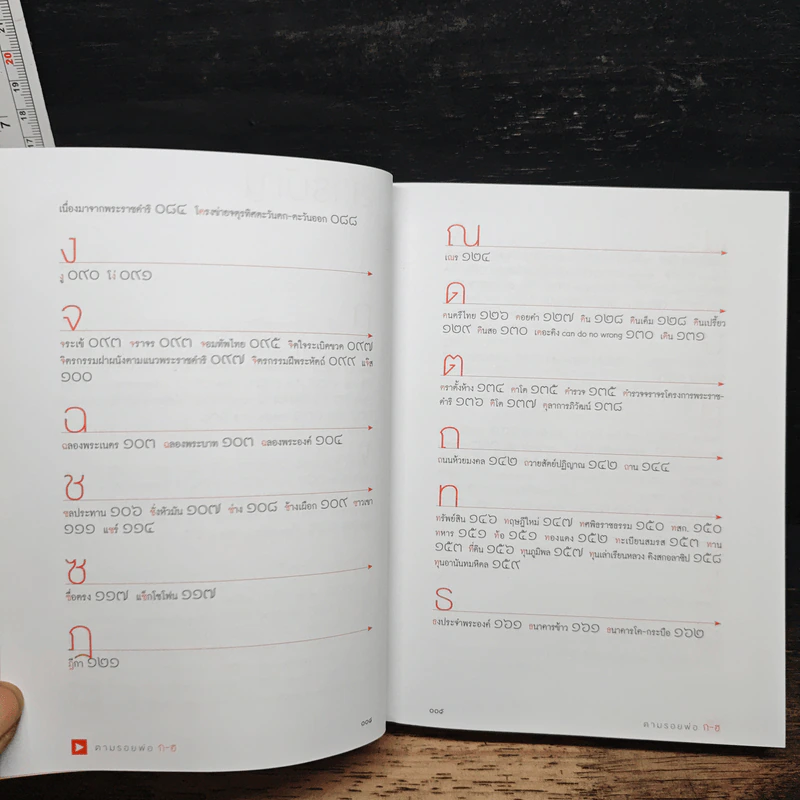 เนื่องมาจากพระราชดำริ ๐๘๔ โครงข่ายจตุรทิศตะวันตก-ตะวันออก ๐๘๘
ง
งู ๐๙๐ โง่ ๐๙๑
จ
จระเข้ ๐๙๓ จราจร ๐๙๓ จอมทัพไทย ๐๙๕ จิตใจระเบิดขวด ๐๙๗
จิตรกรรมฝาผนังตามแนวพระราชดำริ ๐๙๗ จิตรกรรมฝีพระหัตถ์ ๐๙๙ แจ๊ส
๑๐๐
ฉ
ฉลองพระเนตร ๑๐๓ ฉลองพระบาท ๑๐๓ ฉลองพระองค์ ๑๐๔
ช
ชลประทาน ๑๐๖ ชั่งหัวมัน ๑๐๗ ช่าง ๑๐๘ ช้างเผือก ๑๐๙ ชาวเขา
๑๑๑ แชร์ ๑๑๔
ซ
ซื่อตรง ๑๑๗ แซ็กโซโฟน ๑๑๗
ฎ
ฎีกา ๑๒๑
๐๐๘
ตามรอยพ่อ ก-ฮ
ณ
เณร ๑๒๔
ด
ดนตรีไทย ๑๒๖ ดอยคำ ๑๒๗ ดิน ๑๒๘ ดินเค็ม ๑๒๘ ดินเปรี้ยว
๑๒๙ ดินสอ ๑๓๐ เดอะคิง can do no wrong ๑๓๐ เดิน ๑๓๑
ต
ตราตั้งห้าง ๑๓๔ ตาโต ๑๓๕ ตำรวจ ๑๓๕ ตำรวจจราจรโครงการพระราช-
ดำริ ๑๓๖ ติโต ๑๓๗ ตุลาการภิวัฒน์ ๑๓๘
ถ
ถนนห้วยมงคล ๑๔๒ ถวายสัตย์ปฏิญาณ ๑๔๒ ถ่าน ๑๔๔
ท
ทรัพย์สิน ๑๔๖ ทฤษฎีใหม่ ๑๔๗ ทศพิธราชธรรม ๑๕๐ ทสก. ๑๕๐
ทหาร ๑๕๑ ท้อ ๑๕๑ ทองแดง ๑๕๒ ทะเบียนสมรส ๑๕๓ ทาน
๑๕๓ ที่ดิน ๑๕๖ ทุนภูมิพล ๑๕๗ ทุนเล่าเรียนหลวง คิงสกอลาชิป ๑๕๘
ทุนอานันทมหิดล ๑๕๙
ธ
ธงประจำพระองค์ ๑๖๑ ธนาคารข้าว ๑๖๑ ธนาคารโค-กระบือ ๑๖๒
๐๐๙
ตามรอยพ่อ ก-ฮ